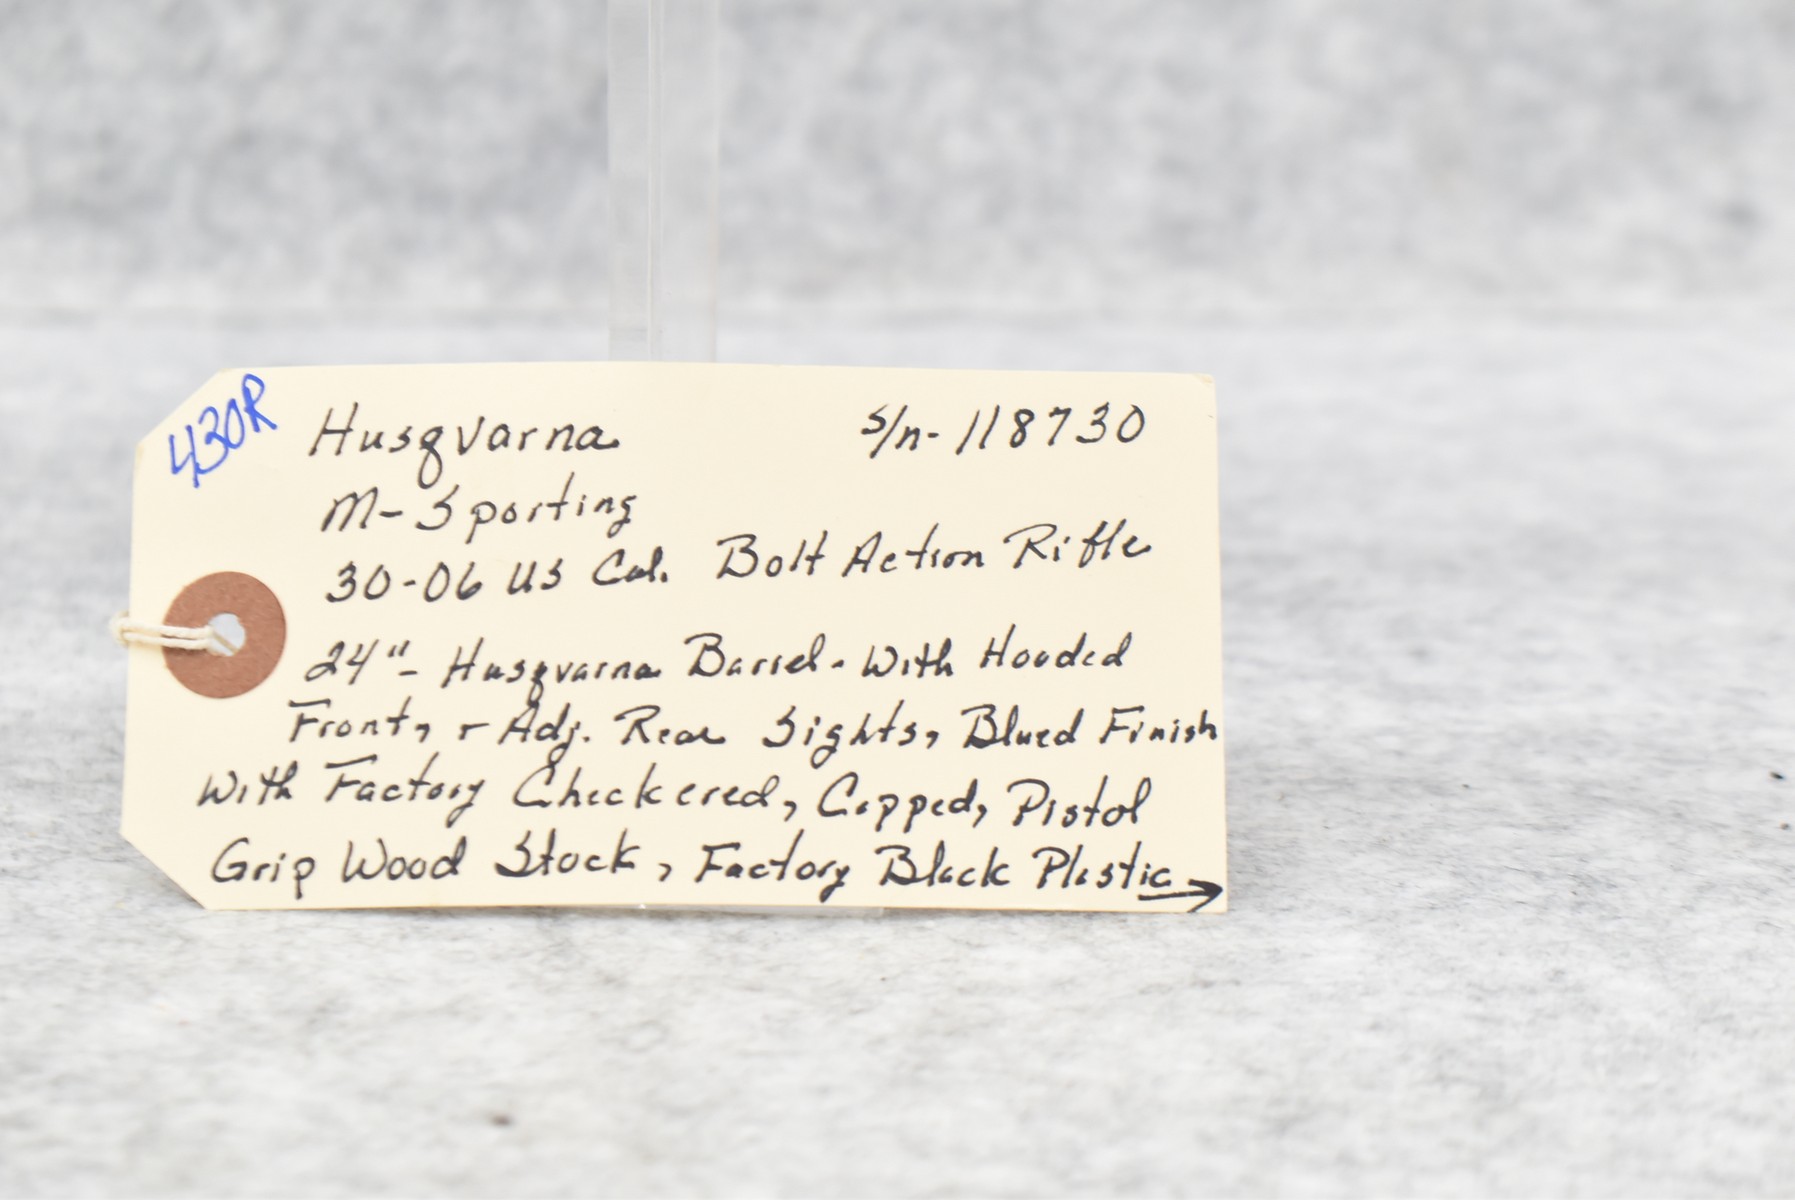 430R
Husqvarna s/n- 118730
M- Sporting
30-06 US Cal. Bolt Action Rifle
24"- Husqvarna Barrel - With Hooded
Front, + Adj. Rear Sights, Blued Finish
With Factory Checkered, Capped, Pistol
Grip Wood Stock, Factory Black Plastic →